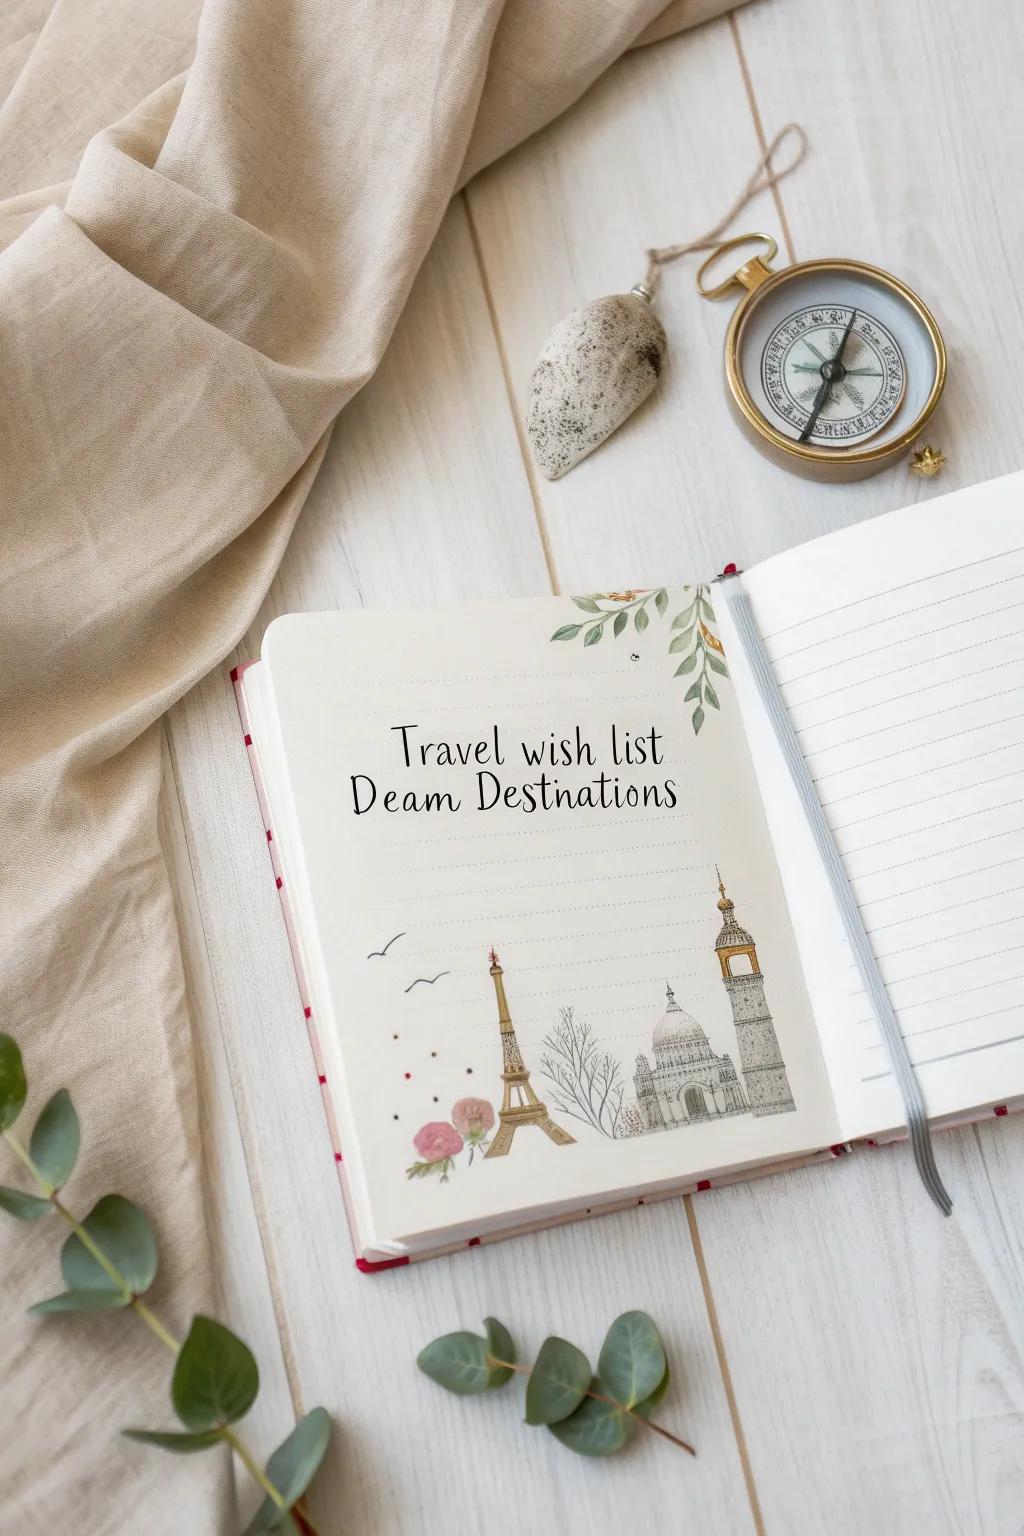 Travel wish list
Deam Destnations